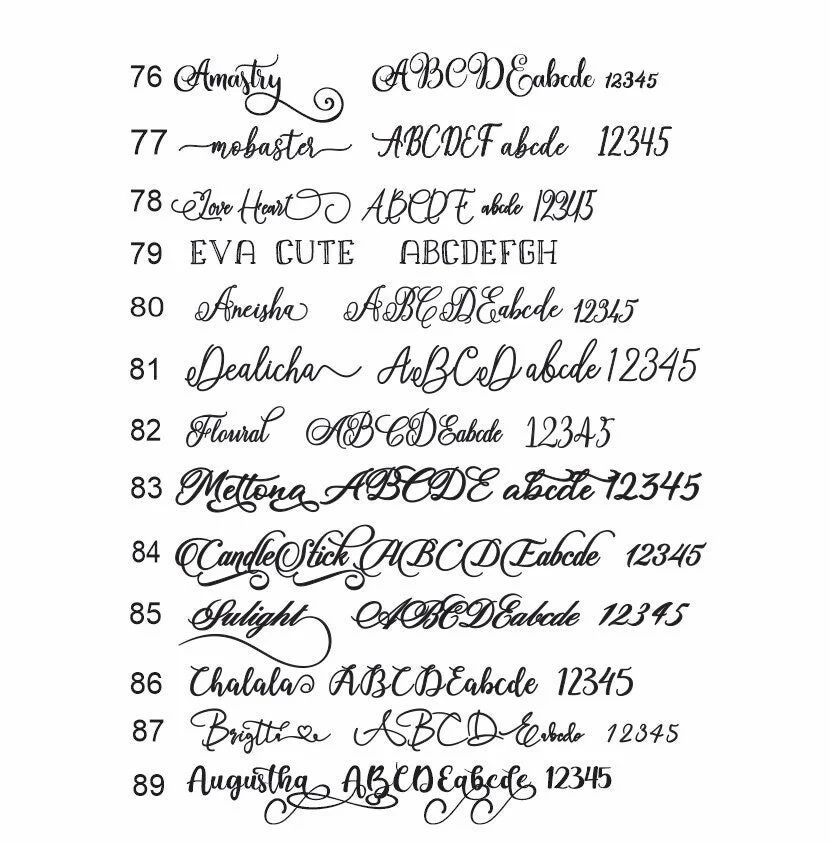 76 Amastry ABCDEabcde 12345
77 mobaster ABCDEF abcde 12345
78 Love Heart ABCDE abcde 12345
79 EVA CUTE ABCDEFGH
80 Aneisha ABCDEabcde 12345
81 Dealicha ABCD abcde 12345
82 Floural ABCDEabcde 12345
83 Mellona ABCDE abcde 12345
84 CandleStick ABCDEabcde 12345
85 Sulight ABCDEabcde 12345
86 Chalala ABCDEabcde 12345
87 Brigtti ABCDEabcde 12345
89 Augustha ABCDEabcde 12345